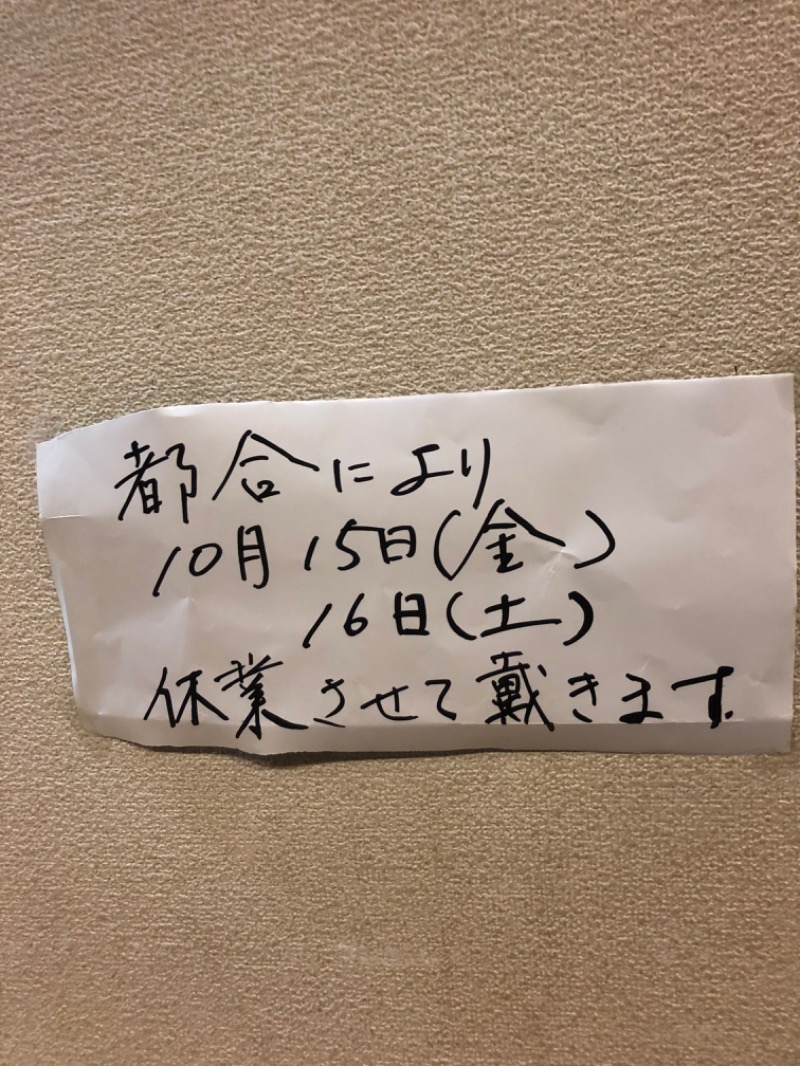 都合により
10月15日(金)
16日(土)
休業させて戴きます.